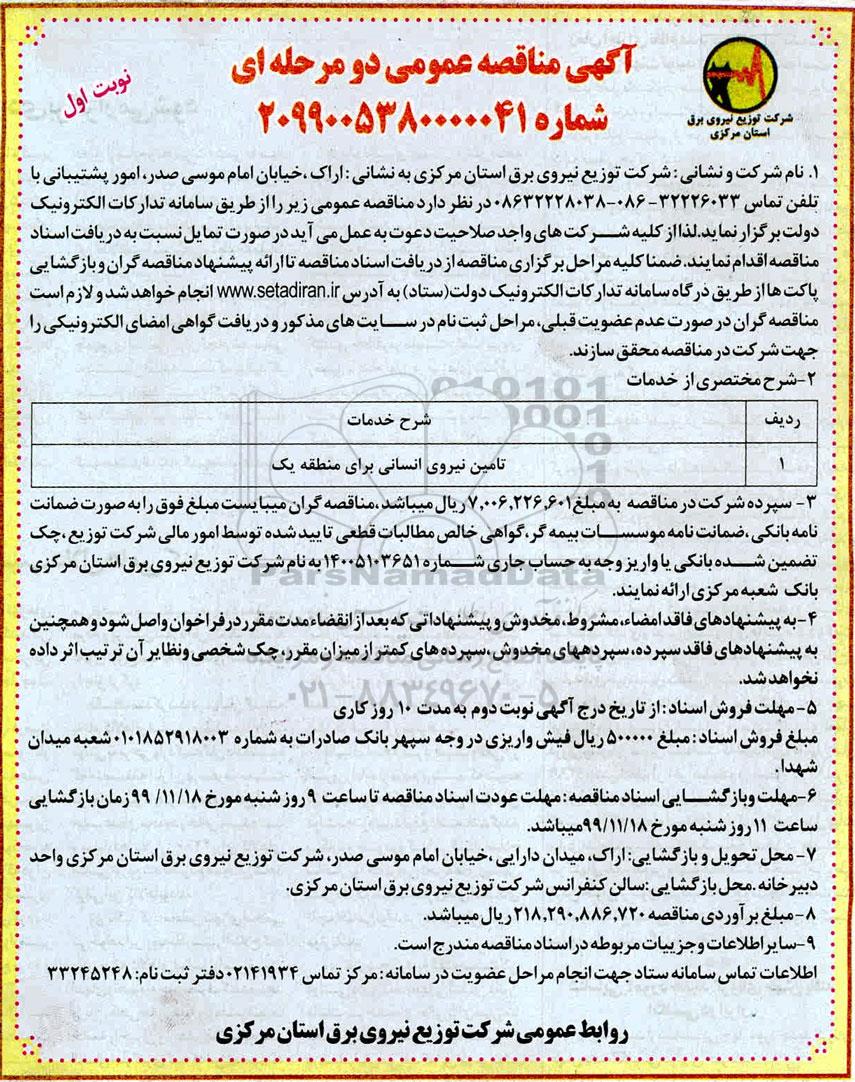 آگهی مناقصه عمومی دو مرحله ای
شماره ۲۰۹۹۰۰۵۳۸۰۰۰۰۰۴۱
نوبت اول
شرکت توزیع نیروی برق
استان مرکزی
۱. نام شرکت و نشانی : شرکت توزیع نیروی برق استان مرکزی به نشانی : اراک ،خیابان امام موسی صدر، امور پشتیبانی با
تلفن تماس ۳۲۲۲۶۰۳۳-۰۸۶-۰۸۶۳۲۲۲۸۰۳۸ در نظر دارد مناقصه عمومی زیر را از طریق سامانه تدارکات الکترونیک
دولت برگزار نماید.لذا از کلیه شرکت های واجد صلاحیت دعوت به عمل می آید در صورت تمایل نسبت به دریافت اسناد
مناقصه اقدام نمایند. ضمنا کلیه مراحل برگزاری مناقصه از دریافت اسناد مناقصه تا ارائه پیشنهاد مناقصه گران و بازگشایی
پاکت ها از طریق درگاه سامانه تدارکات الکترونیک دولت(ستاد) به آدرس www.setadiran.ir انجام خواهد شد و لازم است
مناقصه گران در صورت عدم عضویت قبلی، مراحل ثبت نام در سایت های مذکور و دریافت گواهی امضای الکترونیکی را
جهت شرکت در مناقصه محقق سازند.
۲-شرح مختصری از خدمات
ردیف شرح خدمات
۱ تامین نیروی انسانی برای منطقه یک
۳- سپرده شرکت در مناقصه به مبلغ۷,۰۰۶,۲۲۶,۶۰۱ ریال میباشد،مناقصه گران میبایست مبلغ فوق را به صورت ضمانت
نامه بانکی ،ضمانت نامه موسسات بیمه گر،گواهی خالص مطالبات قطعی تایید شده توسط امور مالی شرکت توزیع ،چک
تضمین شده بانکی یا واریز وجه به حساب جاری شماره ۱۴۰۰۵۱۰۳۶۵۱ به نام شرکت توزیع نیروی برق استان مرکزی
بانک شعبه مرکزی ارائه نمایند.
۴-به پیشنهادهای فاقد امضاء، مشروط، مخدوش و پیشنهاداتی که بعد از انقضاء مدت مقرر در فراخوان واصل شود و همچنین
به پیشنهادهای فاقد سپرده، سپردههای مخدوش ،سپرده های کمتر از میزان مقرر، چک شخصی ونظایر آن ترتیب اثر داده
نخواهد شد.
۵-مهلت فروش اسناد: از تاریخ درج آگهی نوبت دوم به مدت ۱۰ روز کاری
مبلغ فروش اسناد : مبلغ ۵۰۰۰۰۰ ریال فیش واریزی در وجه سپهر بانک صادرات به شماره ۰۱۰۱۸۵۲۹۱۸۰۰۳ شعبه میدان
شهدا.
۶-مهلت وبازگشایی اسناد مناقصه : مهلت عودت اسناد مناقصه تا ساعت ۹ روز شنبه مورخ ۹۹/۱۱/۱۸ زمان بازگشایی
ساعت ۱۱ روز شنبه مورخ ۹۹/۱۱/۱۸میباشد.
۷-محل تحویل و بازگشایی: اراک، میدان دارایی ،خیابان امام موسی صدر، شرکت توزیع نیروی برق استان مرکزی واحد
دبیرخانه .محل بازگشایی :سالن کنفرانس شرکت توزیع نیروی برق استان مرکزی.
۸-مبلغ برآوردی مناقصه ۲۱۸,۲۹۰,۸۸۶,۷۲۰ ریال میباشد.
۹-سایر اطلاعات و جزییات مربوطه در اسناد مناقصه مندرج است.
اطلاعات تماس سامانه ستاد جهت انجام مراحل عضویت در سامانه : مرکز تماس ۰۲۱۴۱۹۳۴دفتر ثبت نام: ۳۳۲۴۵۲۴۸
روابط عمومی شرکت توزیع نیروی برق استان مرکزی
ParsNamadData
۰۲۱-۸۸۳۴۹۶۷۰-۵